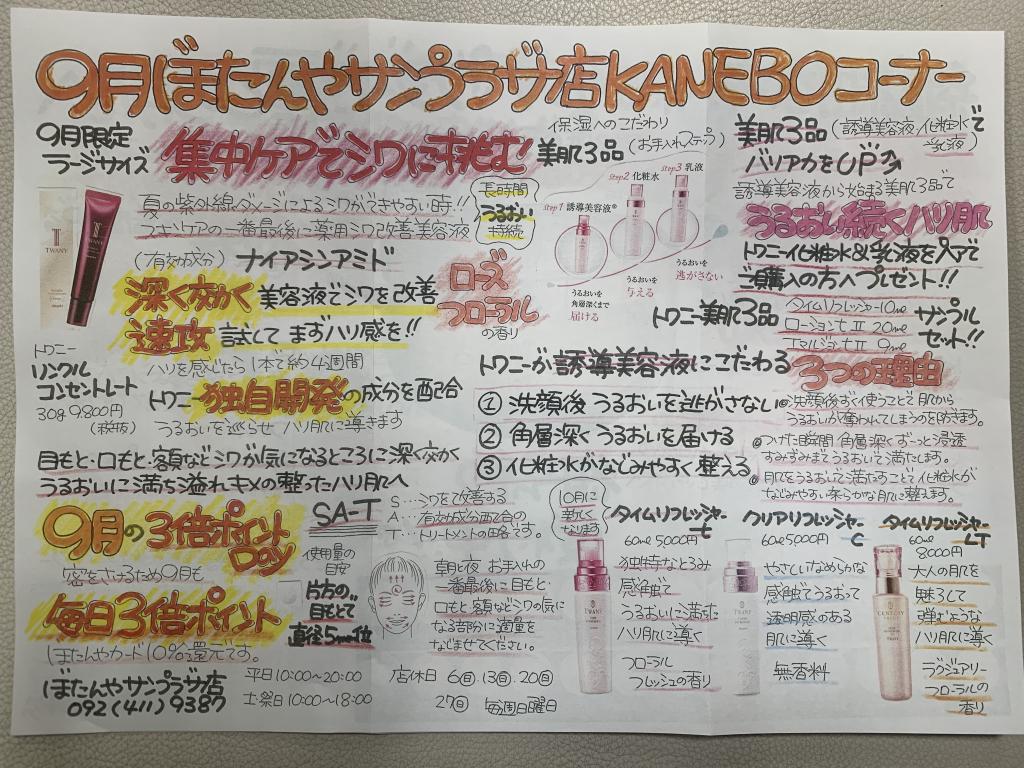 9月ぼたんやサンプラザ店KANEBOコーナー
9月限定
ラージサイズ
集中ケアでシワに挑む!
夏の紫外線ダメージによるシワができやすい時!!
スキンケアの一番最後に薬用シワ改善美容液
(有効成分) ナイアシンアミド
深く効かく 美容液でシワを改善
速攻 試して まずハリ感を!!
ハリを感じたら1本で約4週間
TWANY
トワニー
リンクル
コンセントレート
30g 9,800円
(税抜)
トワニー独自開発の成分を配合
うるおいを巡らせ ハリ肌に導きます
目もと・口もと・額などシワが気になるところに深く効か
うるおいに満ち溢れキメの整ったハリ肌へ
長時間
うるおい
持続
ローズ
フローラル
の香り
保湿へのこだわり
美肌3品(お手入れステップ)
step1 誘導美容液
うるおいを
角層深くまで
届ける
step2 化粧水
うるおいを
与える
step3 乳液
うるおいを
逃がさない
美肌3品(誘導美容液/化粧水/乳液)で
バリア力をUP
誘導美容液から始まる美肌3品で
うるおい続くハリ肌
トワニー化粧水&乳液をペアで
ご購入の方へプレゼント!!
トワニー美肌3品
タイムリフレッシャー10ml
ローションt Ⅱ 20ml
エマルジョンt Ⅱ 9ml
サンプル
セット!!
トワニーが誘導美容液にこだわる
3つの理由
① 洗顔後 うるおいを逃がさない
② 角層深く うるおいを届ける
③ 化粧水がなじみやすく 整える
洗顔後すぐ使うことで肌から
うるおいが奪われてしまうのを防ぎます。
つけた瞬間 角層深くずーっと浸透
すみずみまでうるおいで満たします。
肌をうるおいで満たすことで化粧水が
なじみやすい柔らかな肌に整えます。
9月の3倍ポイント
Day
密をさけるため9月も
毎日3倍ポイント
ぼたんやカード10%還元です。
SA-T
S…シワを改善する
A…有効成分配合の
T…トリートメントの由名です。
使用量の
目安
片方の
目もとで
直径5mm位
朝と夜 お手入れの
一番最後に目もと・
口もと額などシワの気に
なる部分に適量を
なじませてください。
10月に
新しく
なります
タイムリフレッシャー
t
60ml 5,000円
独特なとろみ
感触で
うるおいに満ちた
ハリ肌に導く
フローラル
フレッシュの香り
TWANY
クリアリフレッシャー
C
60ml 5,000円
やさしいなめらかな
感触でうるおって
透明感のある
肌に導く
無香料
TWANY
タイムリフレッシャー
LT
60ml
8000円
大人の肌を
魅了して
弾むような
ハリ肌に導く
ラグジュアリー
フローラルの
香り
TWANY
CENTURY
ぼたんやサンプラザ店
092(411)9387
平日10:00~20:00
土祭日10:00~18:00
店休日 6(日).13(日).20(日)
27(日) 毎週日曜日